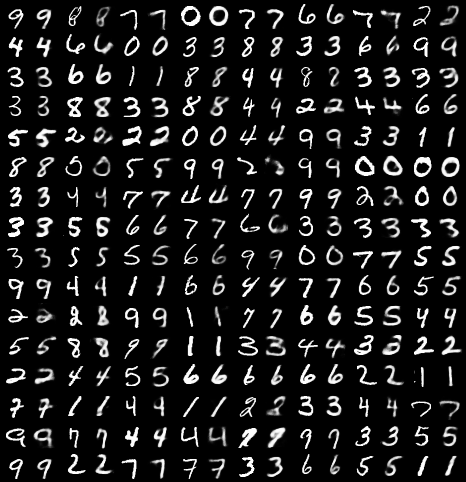 9 9 8 8 7 7 0 0 7 7 6 6 7 7 2 2
4 4 6 6 0 0 3 3 8 8 3 3 6 6 9 9
3 3 6 6 1 1 8 8 4 4 8 3 3 3 3
3 3 8 8 3 3 8 8 4 4 2 2 4 4 6 6
5 5 2 2 2 2 0 0 4 4 9 9 3 3 1 1
8 8 0 0 5 5 9 9 2 9 9 0 0 0 0
3 3 4 4 7 7 4 4 7 7 9 9 2 2 0 0
3 3 5 5 6 6 7 7 6 6 3 3 3 3 3 3
3 3 5 5 5 5 6 6 9 9 0 0 7 7 5 5
9 9 4 4 1 1 6 6 4 4 7 7 6 6 5 5
2 2 2 8 9 9 1 1 7 7 6 6 5 5 4 4
5 5 8 8 9 9 1 1 3 3 4 4 3 3 2 2
2 2 4 4 5 5 6 6 6 6 6 6 2 2 1 1
7 7 1 1 4 4 1 1 2 2 3 3 4 4 7 7
9 9 7 7 4 4 4 4 9 9 9 9 3 3 5 5
9 9 2 2 7 7 7 7 3 3 6 6 5 5 1 1